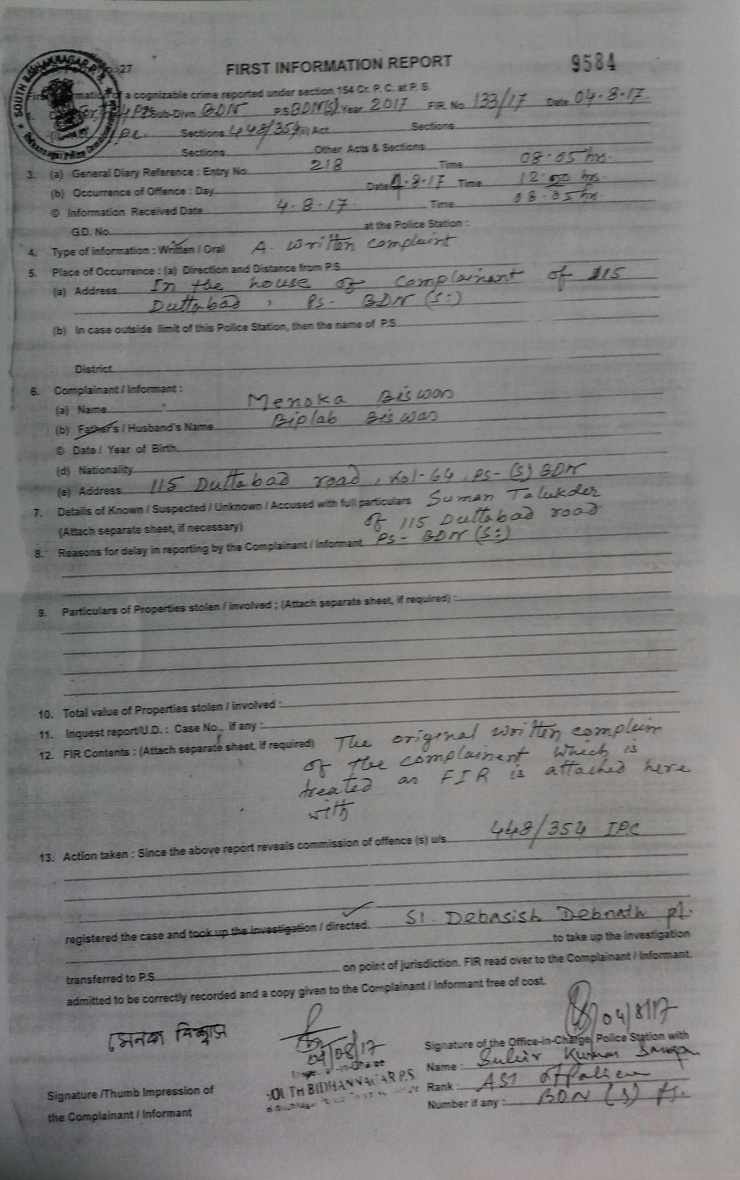 SOUTH BIDHANNAGAR P.S.
27
FIRST INFORMATION REPORT
9584
a cognizable crime reported under section 154 Cr. P. C. at P. S.
Sub-Divn. BDN P.S BDN(S) Year 2017 FIR. No. 133/17 Date 04-8-17
Sections 448/354 Act Sections
Sections Other Acts & Sections
3. (a) General Diary Reference : Entry No. 218 Time 08.05 hrs.
(b) Occurrence of Offence : Day Date 4.8.17 Time 12.00 hrs
© Information Received Date 4.8.17. Time 08.05 hr
G.D. No. at the Police Station :
4. Type of information : Written / Oral A. written complaint
5. Place of Occurrence : (a) Direction and Distance from P.S.
(a) Address In the house of Complainant of 115
Duttabad, Ps- BDN (S:)
(b) In case outside limit of this Police Station, then the name of P.S.
District
6. Complainant / Informant :
(a) Name Menoka Biswas
(b) Father's / Husband's Name Biplab Biswas
© Date / Year of Birth
(d) Nationality
(e) Address 115 Duttabad road, Kol-64, PS- (S) BDN
7. Details of Known / Suspected / Unknown / Accused with full particulars Suman Talukder
(Attach separate sheet, if necessary) of 115 Duttabad road
8. Reasons for delay in reporting by the Complainant / Informant PS- BDN (S:)
9. Particulars of Properties stolen / involved ; (Attach separate sheet, if required) :
10. Total value of Properties stolen / involved :
11. Inquest report/U.D. : Case No., if any :
12. FIR Contents : (Attach separate sheet, if required) The original written complain
of the complainent which is
treated as FIR is attached here
with
13. Action taken : Since the above report reveals commission of offence (s) u/s 448/354 IPC
registered the case and took up the investigation / directed. SI. Debasish Debnath
to take up the investigation
transferred to P.S. on point of jurisdiction. FIR read over to the Complainant / Informant.
admitted to be correctly recorded and a copy given to the Complainant / Informant free of cost.
মেনকা বিশ্বাস
04/08/17
04/8/17
Signature of the Office-in-Charge, Police Station with
SOUTH BIDHANNAGAR P.S.
Name : Kumar
Signature /Thumb Impression of
the Complainant / Informant
Rank : ASI of Police
Number if any : BDN (S)